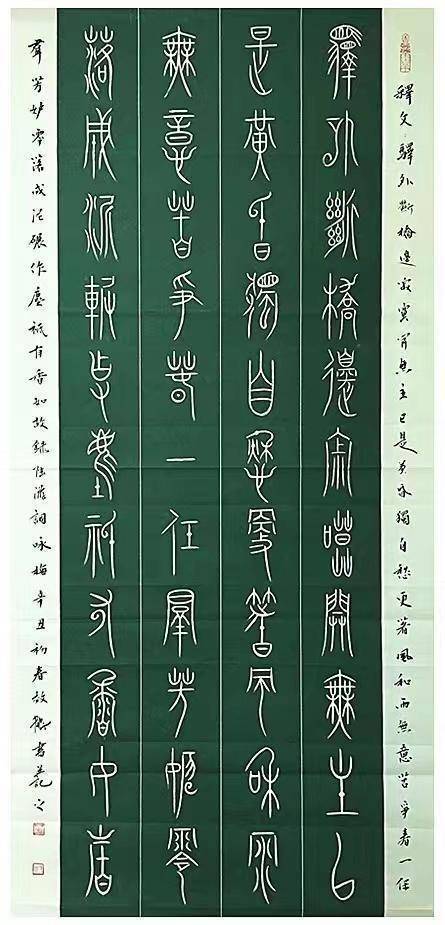 釋文 驛外斷橋邊寂寞開無主已是黃昏獨自愁更著風和雨無意苦爭春一任
驛外斷橋邊寂寞開無主已
是黃昏獨自愁更著風和雨
無意苦爭春一任羣芳妒零
落成泥碾作塵祇有香如故
羣芳妒零落成泥碾作塵祇有香如故録陸游詞咏梅辛丑初春書記之